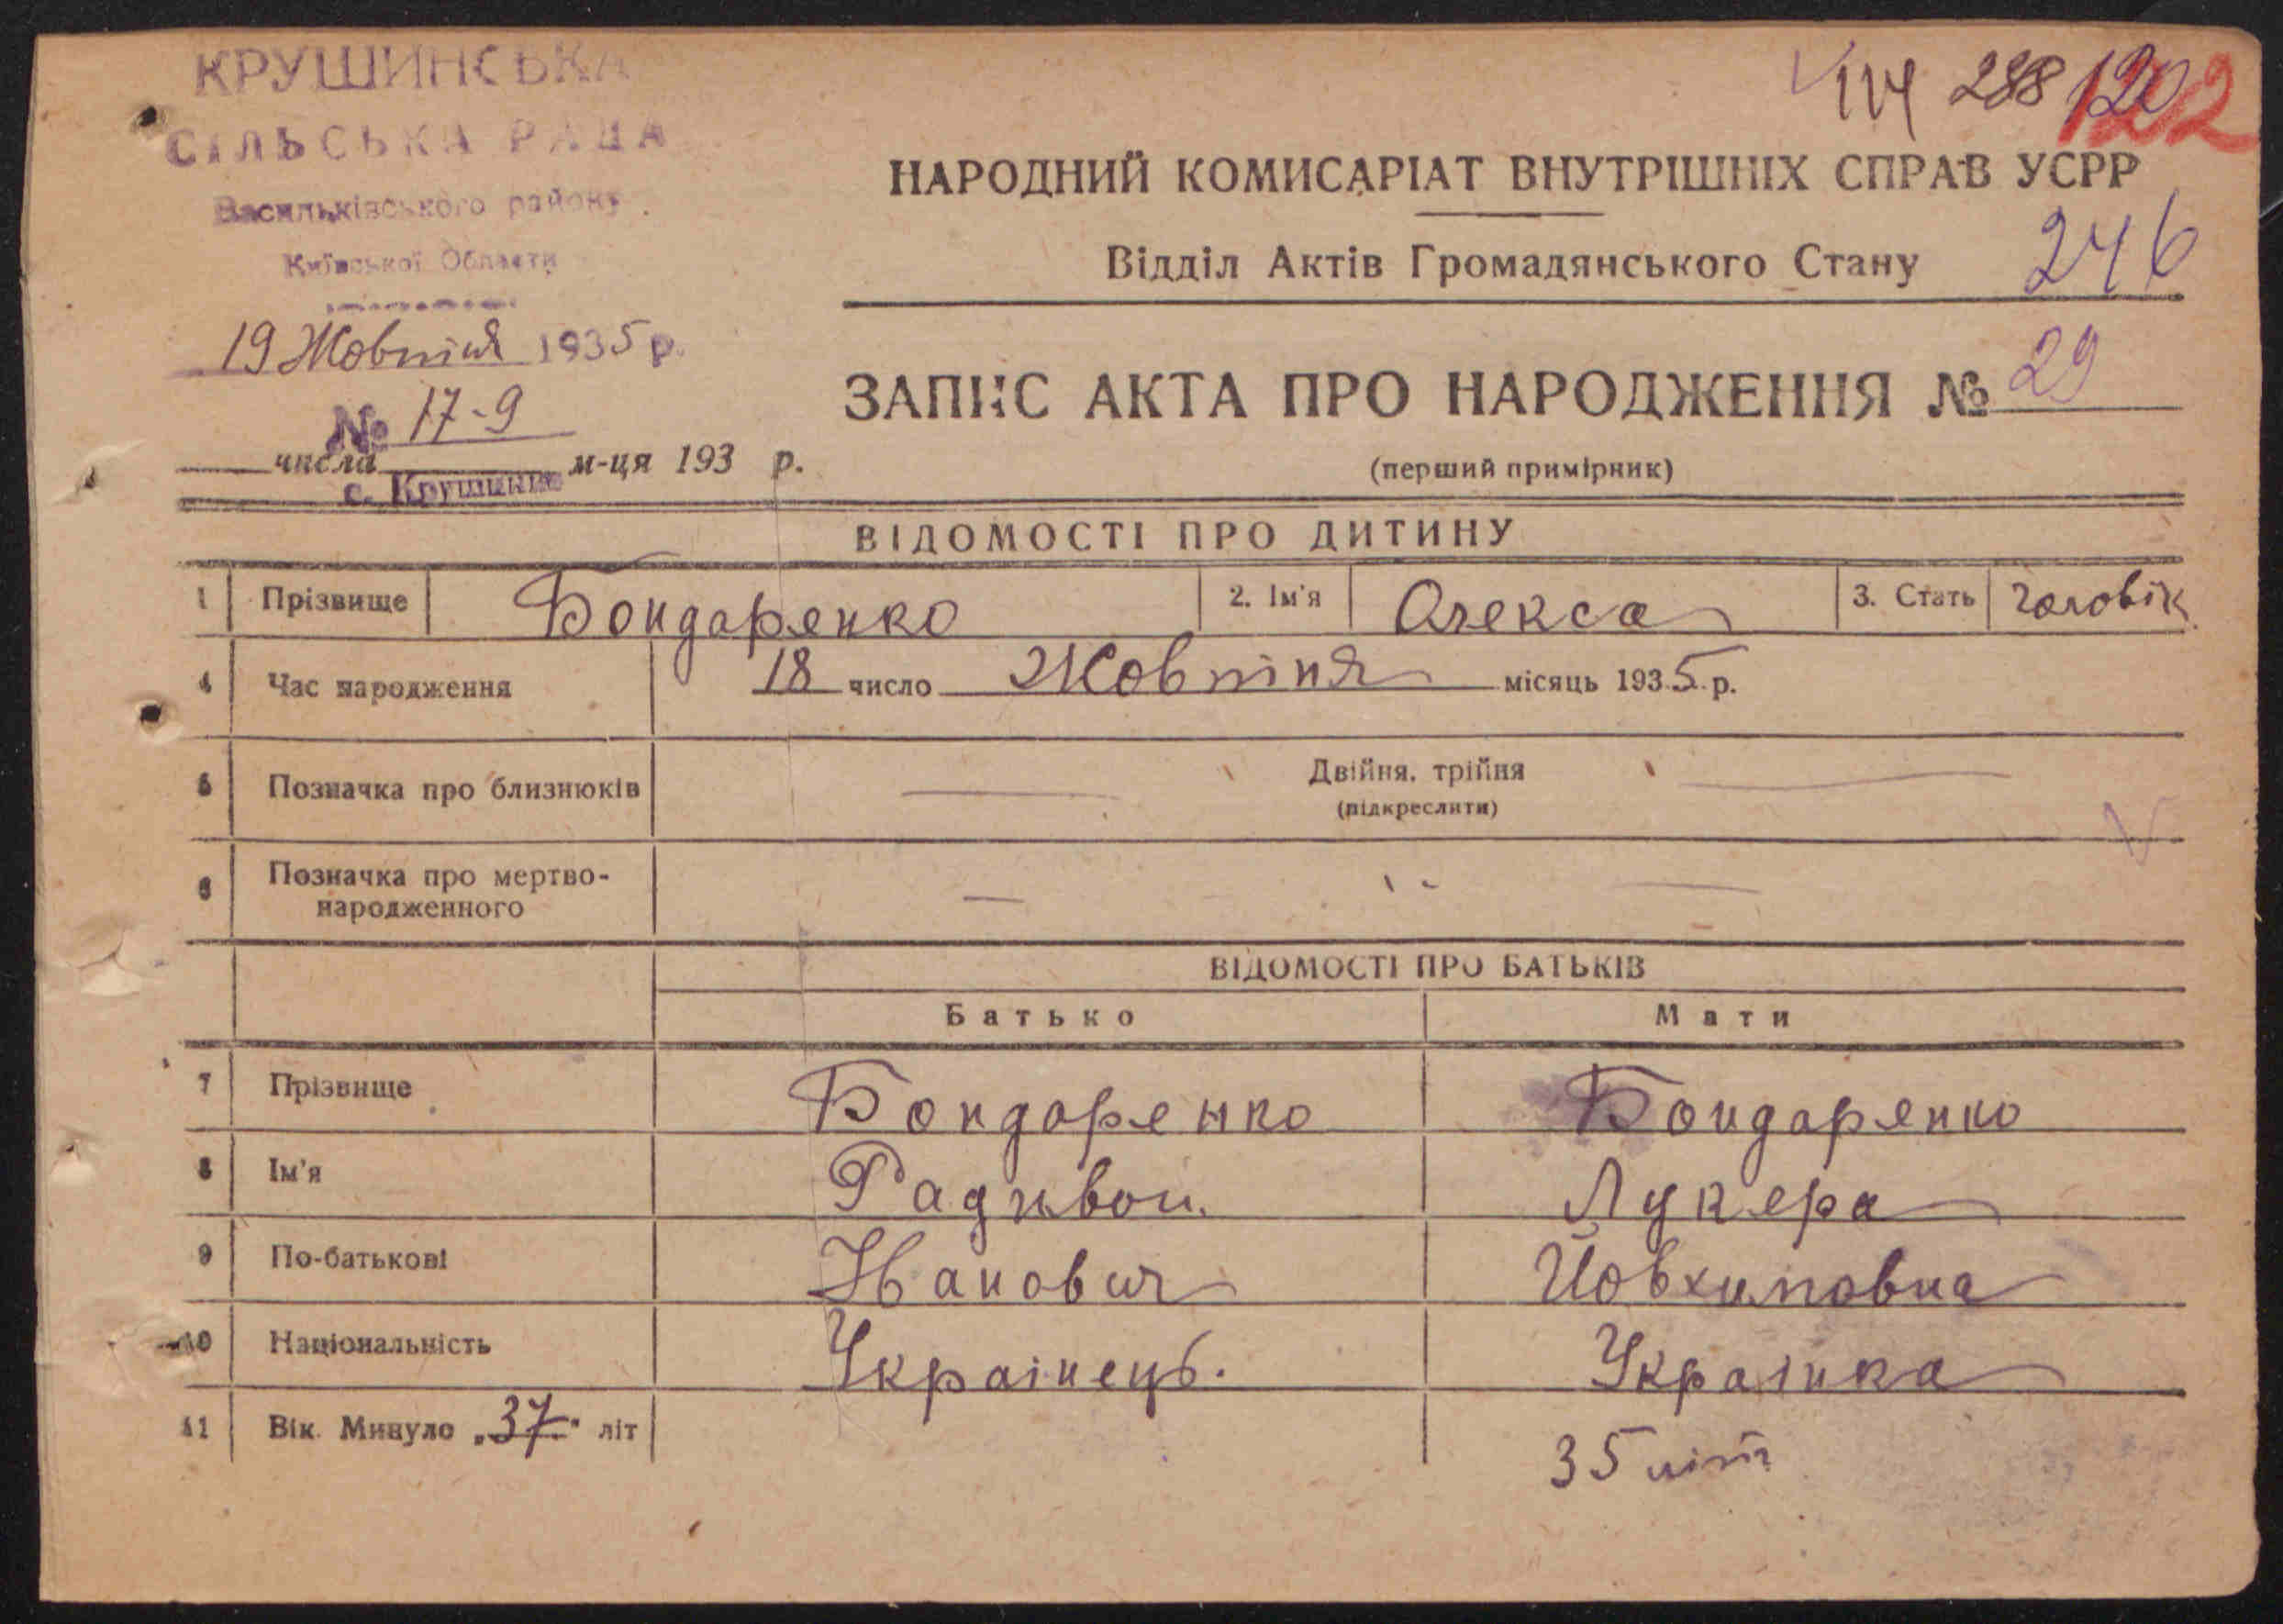 КРУШИНСЬКА
СІЛЬСЬКА РАДА
Васильківського району
Київської Области
19 Жовтня 1935 р.
№ 17-9
числа м-ця 193 р.
с. Крушинка
114 288 120 122
НАРОДНИЙ КОМИСАРІАТ ВНУТРІШНІХ СПРАВ УСРР
Відділ Актів Громадянського Стану 246
ЗАПИС АКТА ПРО НАРОДЖЕННЯ № 29
(перший примірник)
ВІДОМОСТІ ПРО ДИТИНУ
1 Прізвище Бондаренко 2. Ім'я Олекса 3. Стать Чоловік.
4 Час народження 18 число Жовтня місяць 1935 р.
5 Позначка про близнюків Двійня, трійня
(підкреслити)
6 Позначка про мертво-
народженного
ВІДОМОСТІ ПРО БАТЬКІВ
Батько Мати
7 Прізвище Бондаренко Бондаренко
8 Ім'я Радивон. Лукера
9 По-батькові Іванович Йовхимовна
10 Національність Українець. Українка
11 Вік. Минуло „37" літ 35 літ